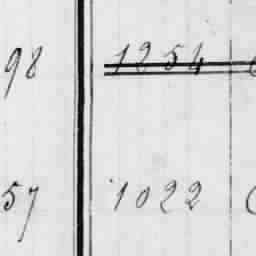 98 1254
57 1022